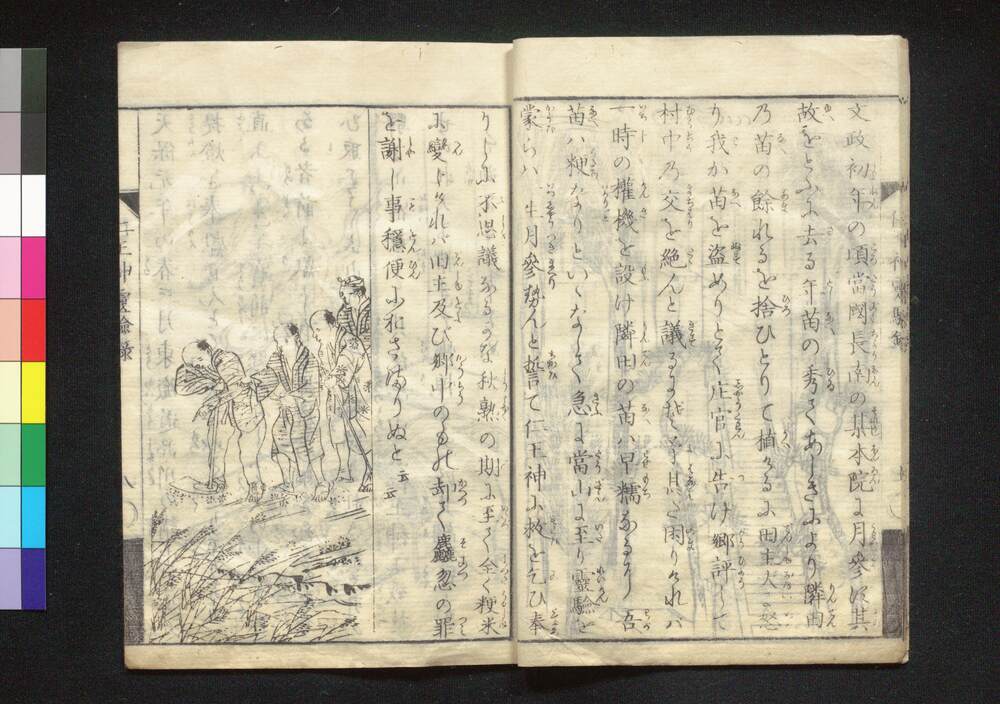 文政初年の頃當國長南の某本院に月參す其
故をとふに去る年苗の秀てあしきにより隣田
乃苗の餘れるを捨ひとりて植けるに田主大に怒
り我か苗を盗めりとて庄官に告け郷評して
村中乃交を絶んと議する故其甚た困りけれハ
一時の權機を設け隣田の苗ハ早糯なるよし吾
苗ハ粳なりといゝなして急き當山に至り靈驗を
蒙らハ 生月參勢んと誓て仁王神に救を乞ひ奉
りしに不思議なるかな秋熟の期に至て全く粳米
に變しけれハ田主及び郷中のもの却て麤忽の罪
を謝し事穩便に和きはりぬと云云
仁王神靈驗録
八